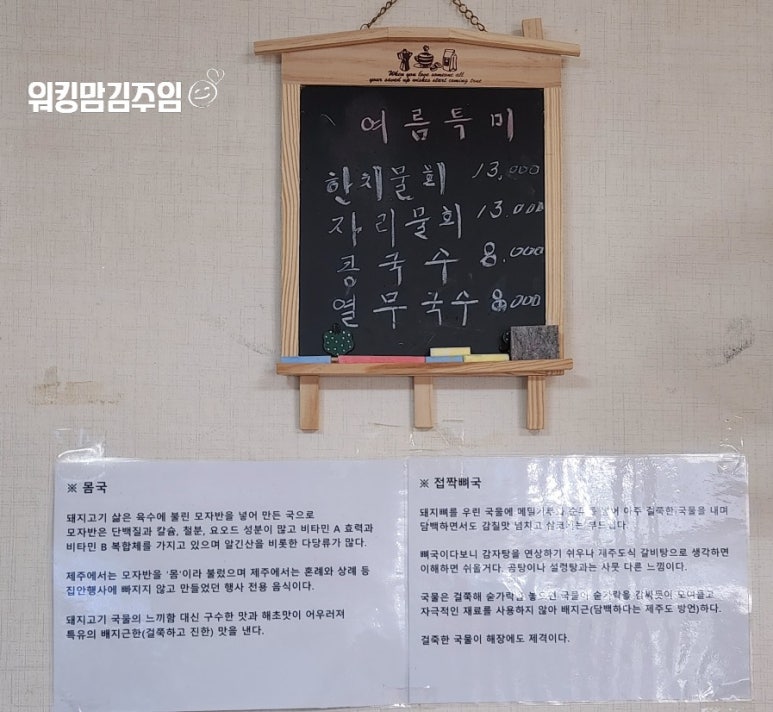 워킹맘김주임
When you love someone all
your saved up wishes start coming true
여름특미
한치물회 13,000
자리물회 13.000
콩국수 8.000
열무국수 8,000
※ 몸국
돼지고기 삶은 육수에 불린 모자반을 넣어 만든 국으로
모자반은 단백질과 칼슘, 철분, 요오드 성분이 많고 비타민 A 효력과
비타민 B 복합체를 가지고 있으며 알긴산을 비롯한 다당류가 많다.
제주에서는 모자반을 '몸'이라 불렀으며 제주에서는 혼례와 상례 등
집안행사에 빠지지 않고 만들었던 행사 전용 음식이다.
돼지고기 국물의 느끼함 대신 구수한 맛과 해초맛이 어우러져
특유의 배지근한(걸쭉하고 진한) 맛을 낸다.
※ 접짝뼈국
돼지뼈를 우린 국물에 메밀가루와 넣어 아주 걸쭉한 국물을 내며
담백하면서도 감칠맛 넘치고
뼈국이다보니 감자탕을 연상하기 쉬우나 제주도식 갈비탕으로 생각하면
이해하면 쉬울거다. 곰탕이나 설렁탕과는 사뭇 다른 느낌이다.
국물은 걸쭉해 숟가락을 놓으면 국물이 숟가락을 감싸듯이
자극적인 재료를 사용하지 않아 배지근(담백하다는 제주도 방언)하다.
걸죽한 국물이 해장에도 제격이다.